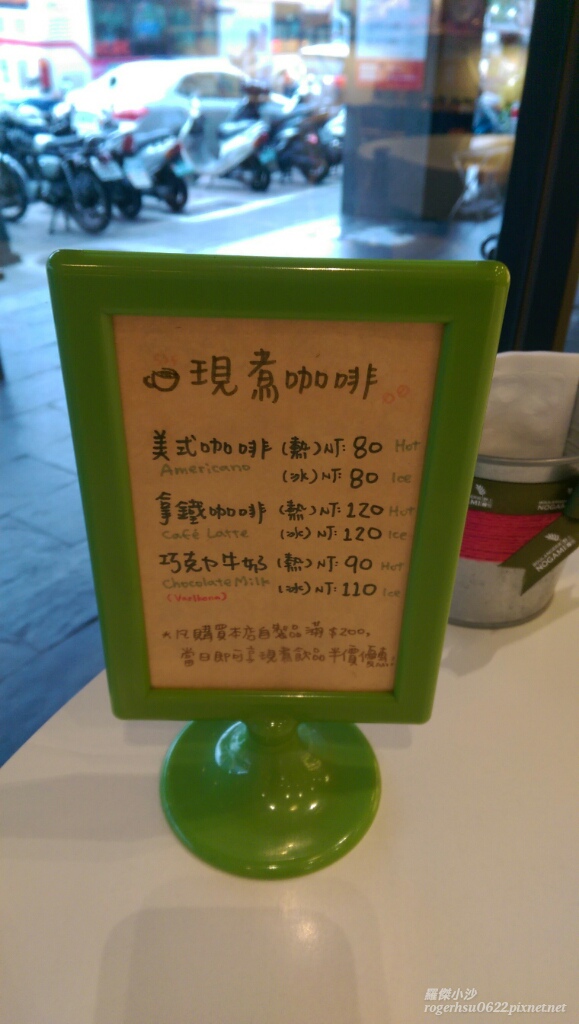 現煮咖啡
美式咖啡 (熱) NT: 80 Hot
Americano (冰) NT: 80 Ice
拿鐵咖啡 (熱) NT: 120 Hot
Café Latte (冰) NT: 120 Ice
巧克力牛奶 (熱) NT: 90 Hot
Chocolate Milk (冰) NT: 110 Ice
(Valrhona)
*凡購買本店自製品滿$200,
當日即可享現煮飲品半價優惠!
NOGAMI
羅傑小沙
rogerhsu0622.pixnet.net